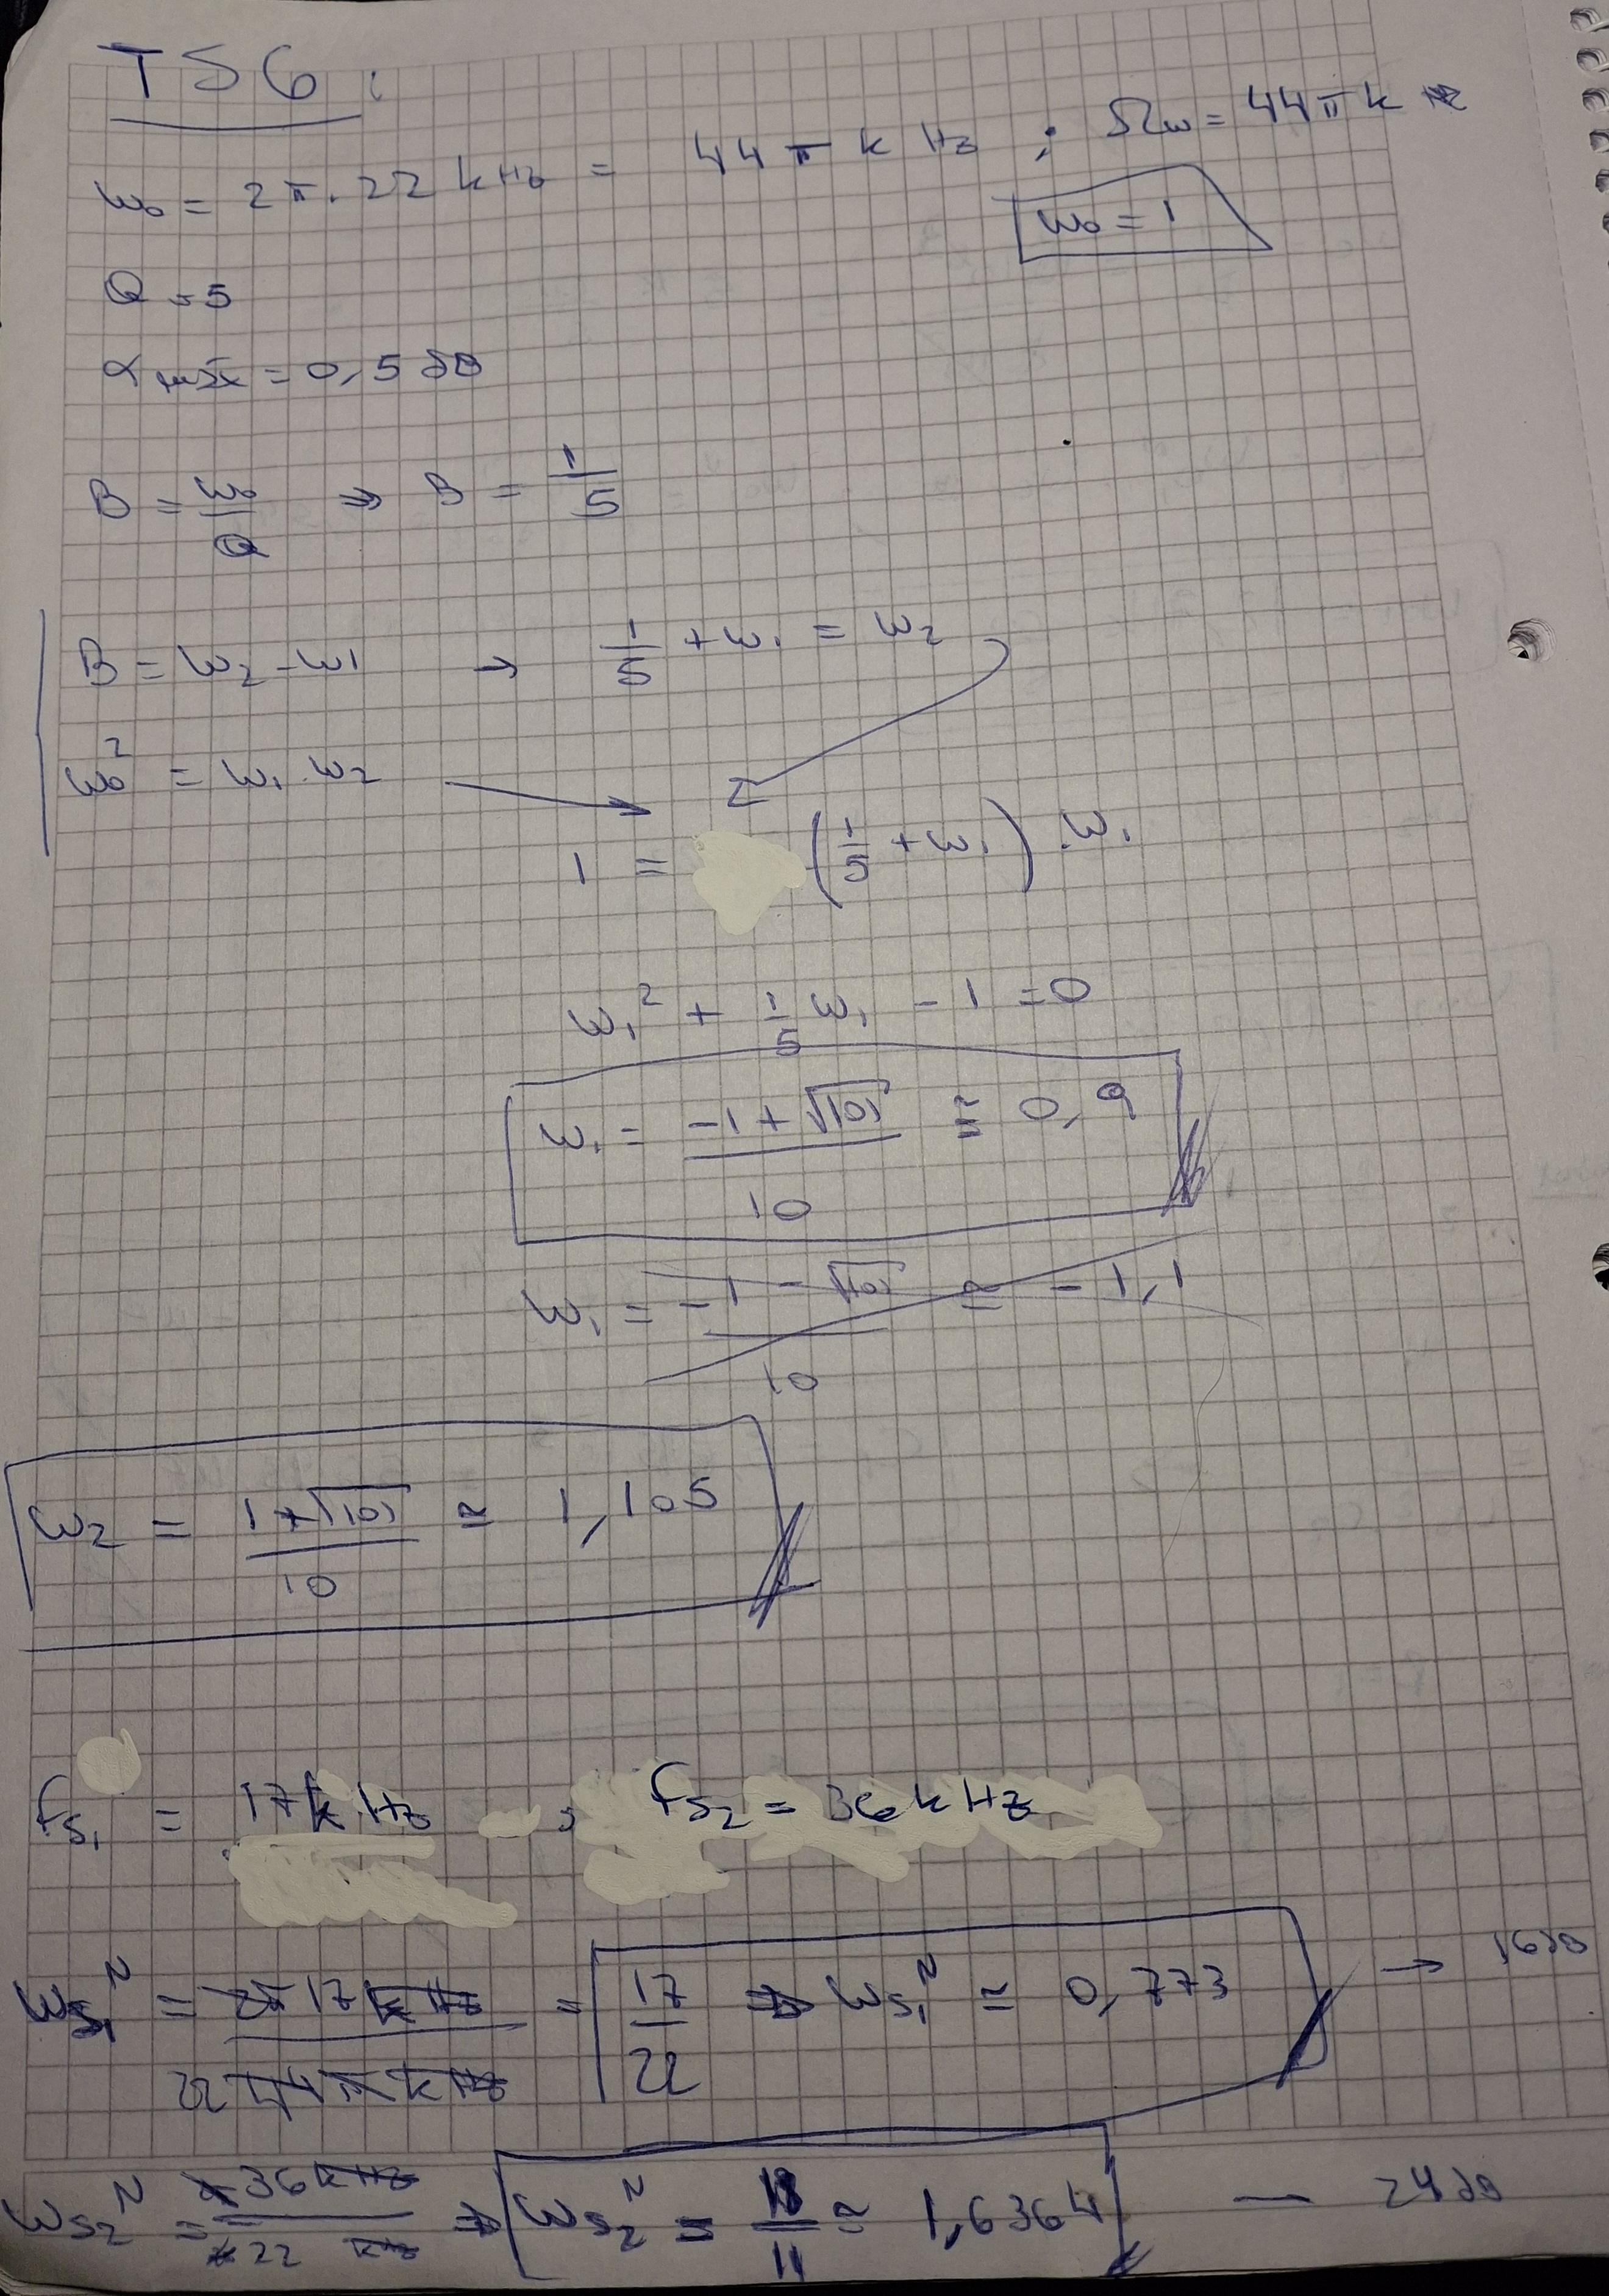 TS6:
ω₀ = 2π.22 kHz = 44π k Hz ; Ωω = 44πk
ω₀ = 1
Q = 5
αmáx = 0,5 dB
B = ω₀/Q ⇒ B = 1/5
B = ω₂ - ω1 → 1/5 + ω₁ = ω₂
ω₀² = ω₁.ω₂
1 = (1/5 + ω₁).ω₁
ω₁² + 1/5 ω₁ - 1 = 0
ω₁ = (-1+√101)/10 ≅ 0,9
ω₁ = (-1-√101)/10 ≅ -1,1
ω₂ = (1+√101)/10 ≅ 1,105
fs₁ = 17kHz , fs₂ = 36kHz
ωs₁ᴺ = 2π17kHz/22 44πkHz = 17/22 ⇒ ωs₁ᴺ ≅ 0,773 → 16dB
ωs₂ᴺ = 36kHz/22 kHz ⇒ ωs₂ᴺ = 18/11 ≅ 1,6364 — 24dB